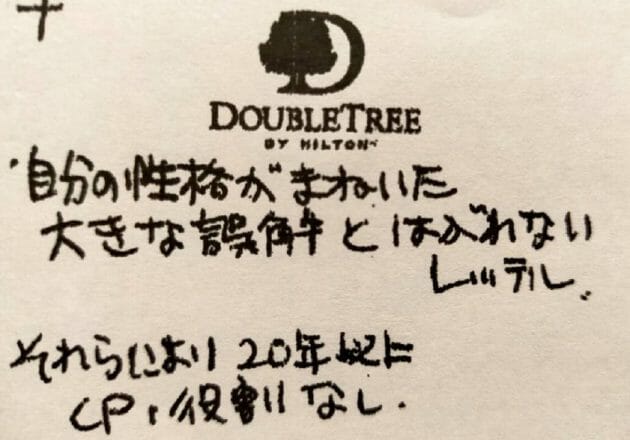 DOUBLETREE
BY HILTON
自分の性格がまねいた
大きな誤解とはがれない
レッテル。
それらにより20年以上
CP、役割なし.